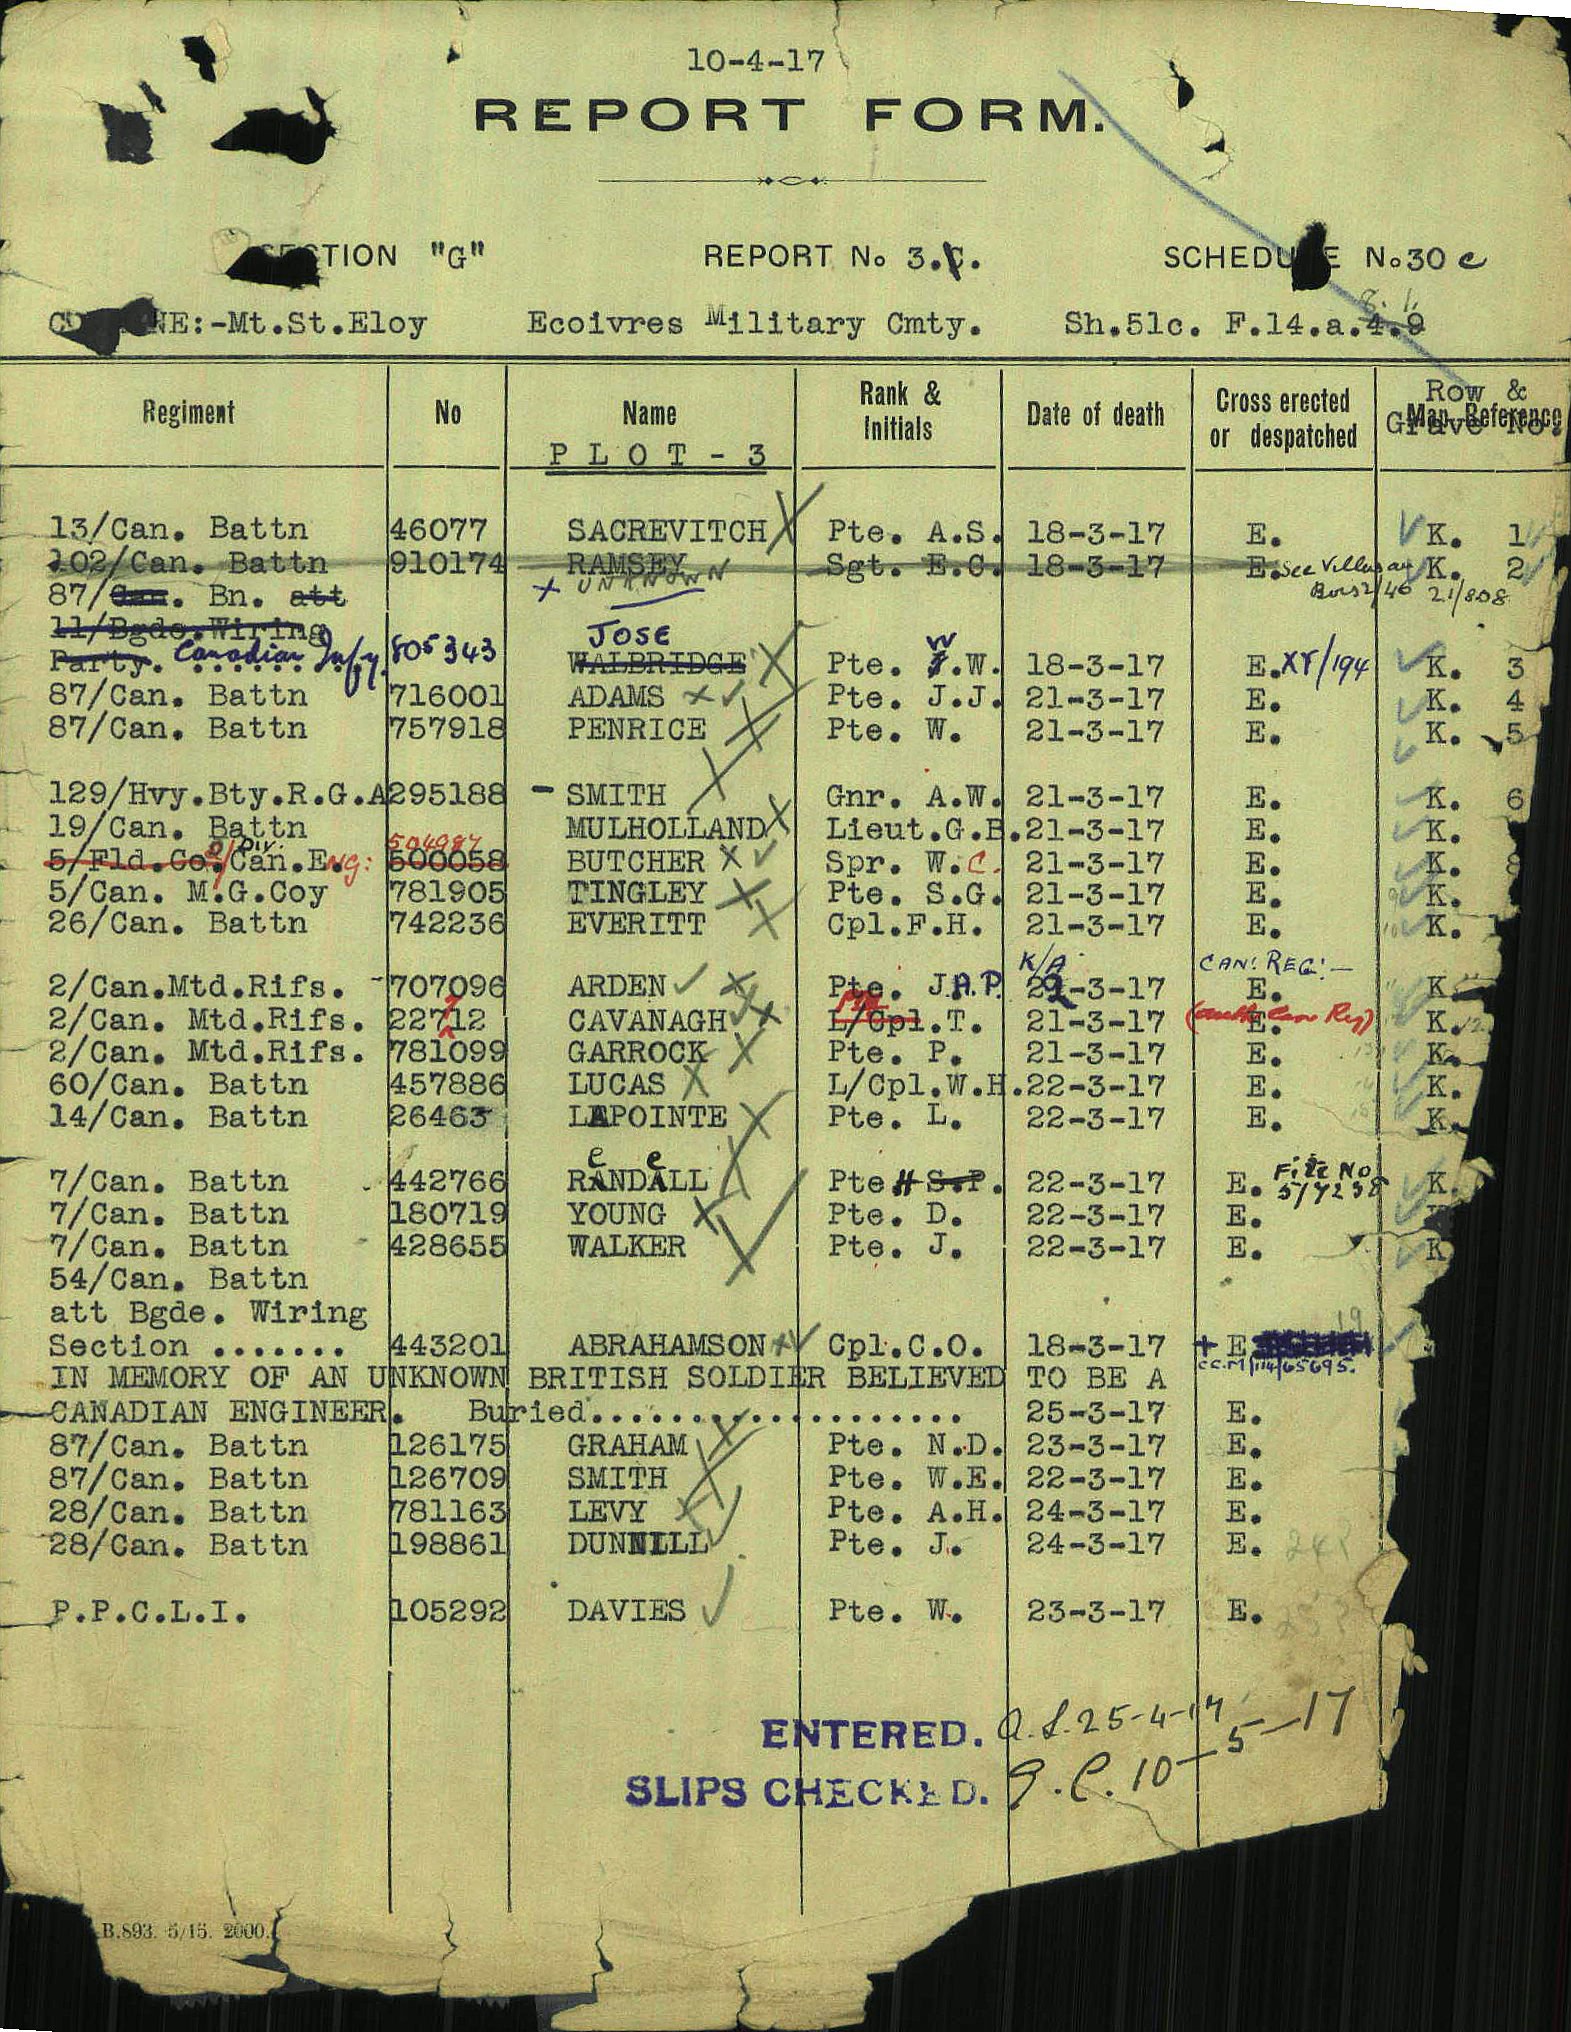 10-4-17
REPORT FORM.
SECTION "G" REPORT No 3.C. SCHEDULE No 30 c
COMMUNE:-Mt.St.Eloy Ecoivres Military Cmty. Sh.51c. F.14.a.4.9 8.1.
Regiment No Name Rank & Initials Date of death Cross erected or despatched Map Reference Row & Grave No.
PLOT - 3
13/Can. Battn 46077 SACREVITCH Pte. A.S. 18-3-17 E. K. 1
102/Can. Battn 910174 RAMSEY Sgt. E.C. 18-3-17 E. See Villers au K. 2
87/Can. Bn. att + UNKNOWN Bois 2/46 21/808
11/Bgde.Wiring JOSE
Party. Canadian Infy. 805343 WALBRIDGE Pte. W.W. 18-3-17 E. XY/194 K. 3
87/Can. Battn 716001 ADAMS Pte. J.J. 21-3-17 E. K. 4
87/Can. Battn 757918 PENRICE Pte. W. 21-3-17 E. K. 5
129/Hvy.Bty.R.G.A 295188 - SMITH Gnr. A.W. 21-3-17 E. K. 6
19/Can. Battn MULHOLLAND Lieut.G.B. 21-3-17 E. K.
Div. 504987
5/Fld.Co./Can.Eng: 500058 BUTCHER Spr. W.C. 21-3-17 E. K. 8
5/Can. M.G.Coy 781905 TINGLEY Pte. S.G. 21-3-17 E. K.
26/Can. Battn 742236 EVERITT Cpl.F.H. 21-3-17 E. K. 1
K/A CAN: REG:-
2/Can.Mtd.Rifs. 707096 ARDEN Pte. J.A.P. 22-3-17 E. K.
2/Can. Mtd.Rifs. 22712 CAVANAGH Pte L/Cpl.T. 21-3-17 E. (auth Can Reg) K. 12
2/Can. Mtd.Rifs. 781099 GARROCK Pte. P. 21-3-17 E. K.
60/Can. Battn 457886 LUCAS L/Cpl.W.H. 22-3-17 E. K.
14/Can. Battn 26463 LAPOINTE Pte. L. 22-3-17 E. K.
e e File No
7/Can. Battn 442766 RANDALL Pte. H S.P. 22-3-17 E. 5/7238 K.
7/Can. Battn 180719 YOUNG Pte. D. 22-3-17 E.
7/Can. Battn 428655 WALKER Pte. J. 22-3-17 E. K
54/Can. Battn
att Bgde. Wiring
Section ....... 443201 ABRAHAMSON Cpl.C.O. 18-3-17 + E 19
CC.M/114/65695.
IN MEMORY OF AN UNKNOWN BRITISH SOLDIER BELIEVED TO BE A
CANADIAN ENGINEER. Buried................... 25-3-17 E.
87/Can. Battn 126175 GRAHAM Pte. N.D. 23-3-17 E.
87/Can. Battn 126709 SMITH Pte. W.E. 22-3-17 E.
28/Can. Battn 781163 LEVY Pte. A.H. 24-3-17 E.
28/Can. Battn 198861 DUNNILL Pte. J. 24-3-17 E.
P.P.C.L.I. 105292 DAVIES Pte. W. 23-3-17 E.
ENTERED. A.S. 25-4-17
SLIPS CHECKED. G.C. 10-5-17
B.893. 5/15. 2000.